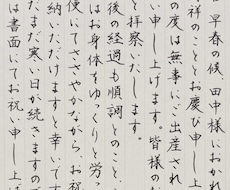 早春の候、田中様におかれ
祥のこととお慶び申し上
の度は無事にご出産され
い申し上げます。皆様の
と拝察いたします。
後の経過も順調とのこと、
はお身体をゆっくりと労っ
便にてささやかながら、お祝
納いただけますと幸いです
だまだ寒い日が続きますの
は書面にてお祝い申し上げ